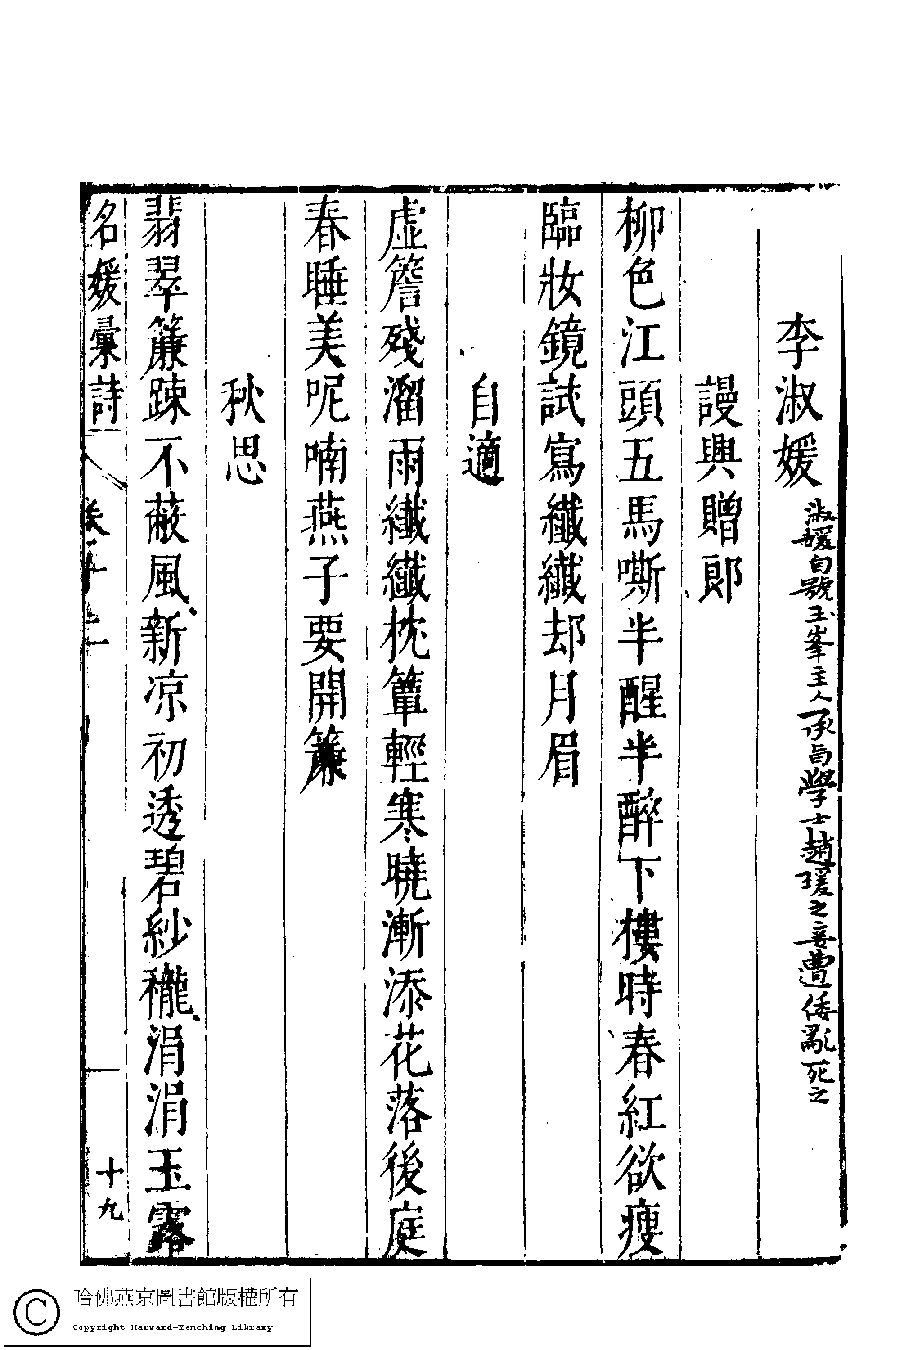 李淑媛 淑媛自號玉峯主人承旨學士趙瑗之妾遭倭亂死之
謾興贈郎
柳色江頭五馬嘶半醒半醉下樓時春紅欲瘦
臨妝鏡試寫纖纖却月眉
自適
虛簷殘溜雨纖纖枕簟輕寒曉漸添花落後庭
春睡美呢喃燕子要開簾
秋思
翡翠簾疎不蔽風新凉初透碧紗櫳涓涓玉露
名媛彙詩
十九
哈佛燕京圖書館版權所有
Copyright Harvard-Yenching Library